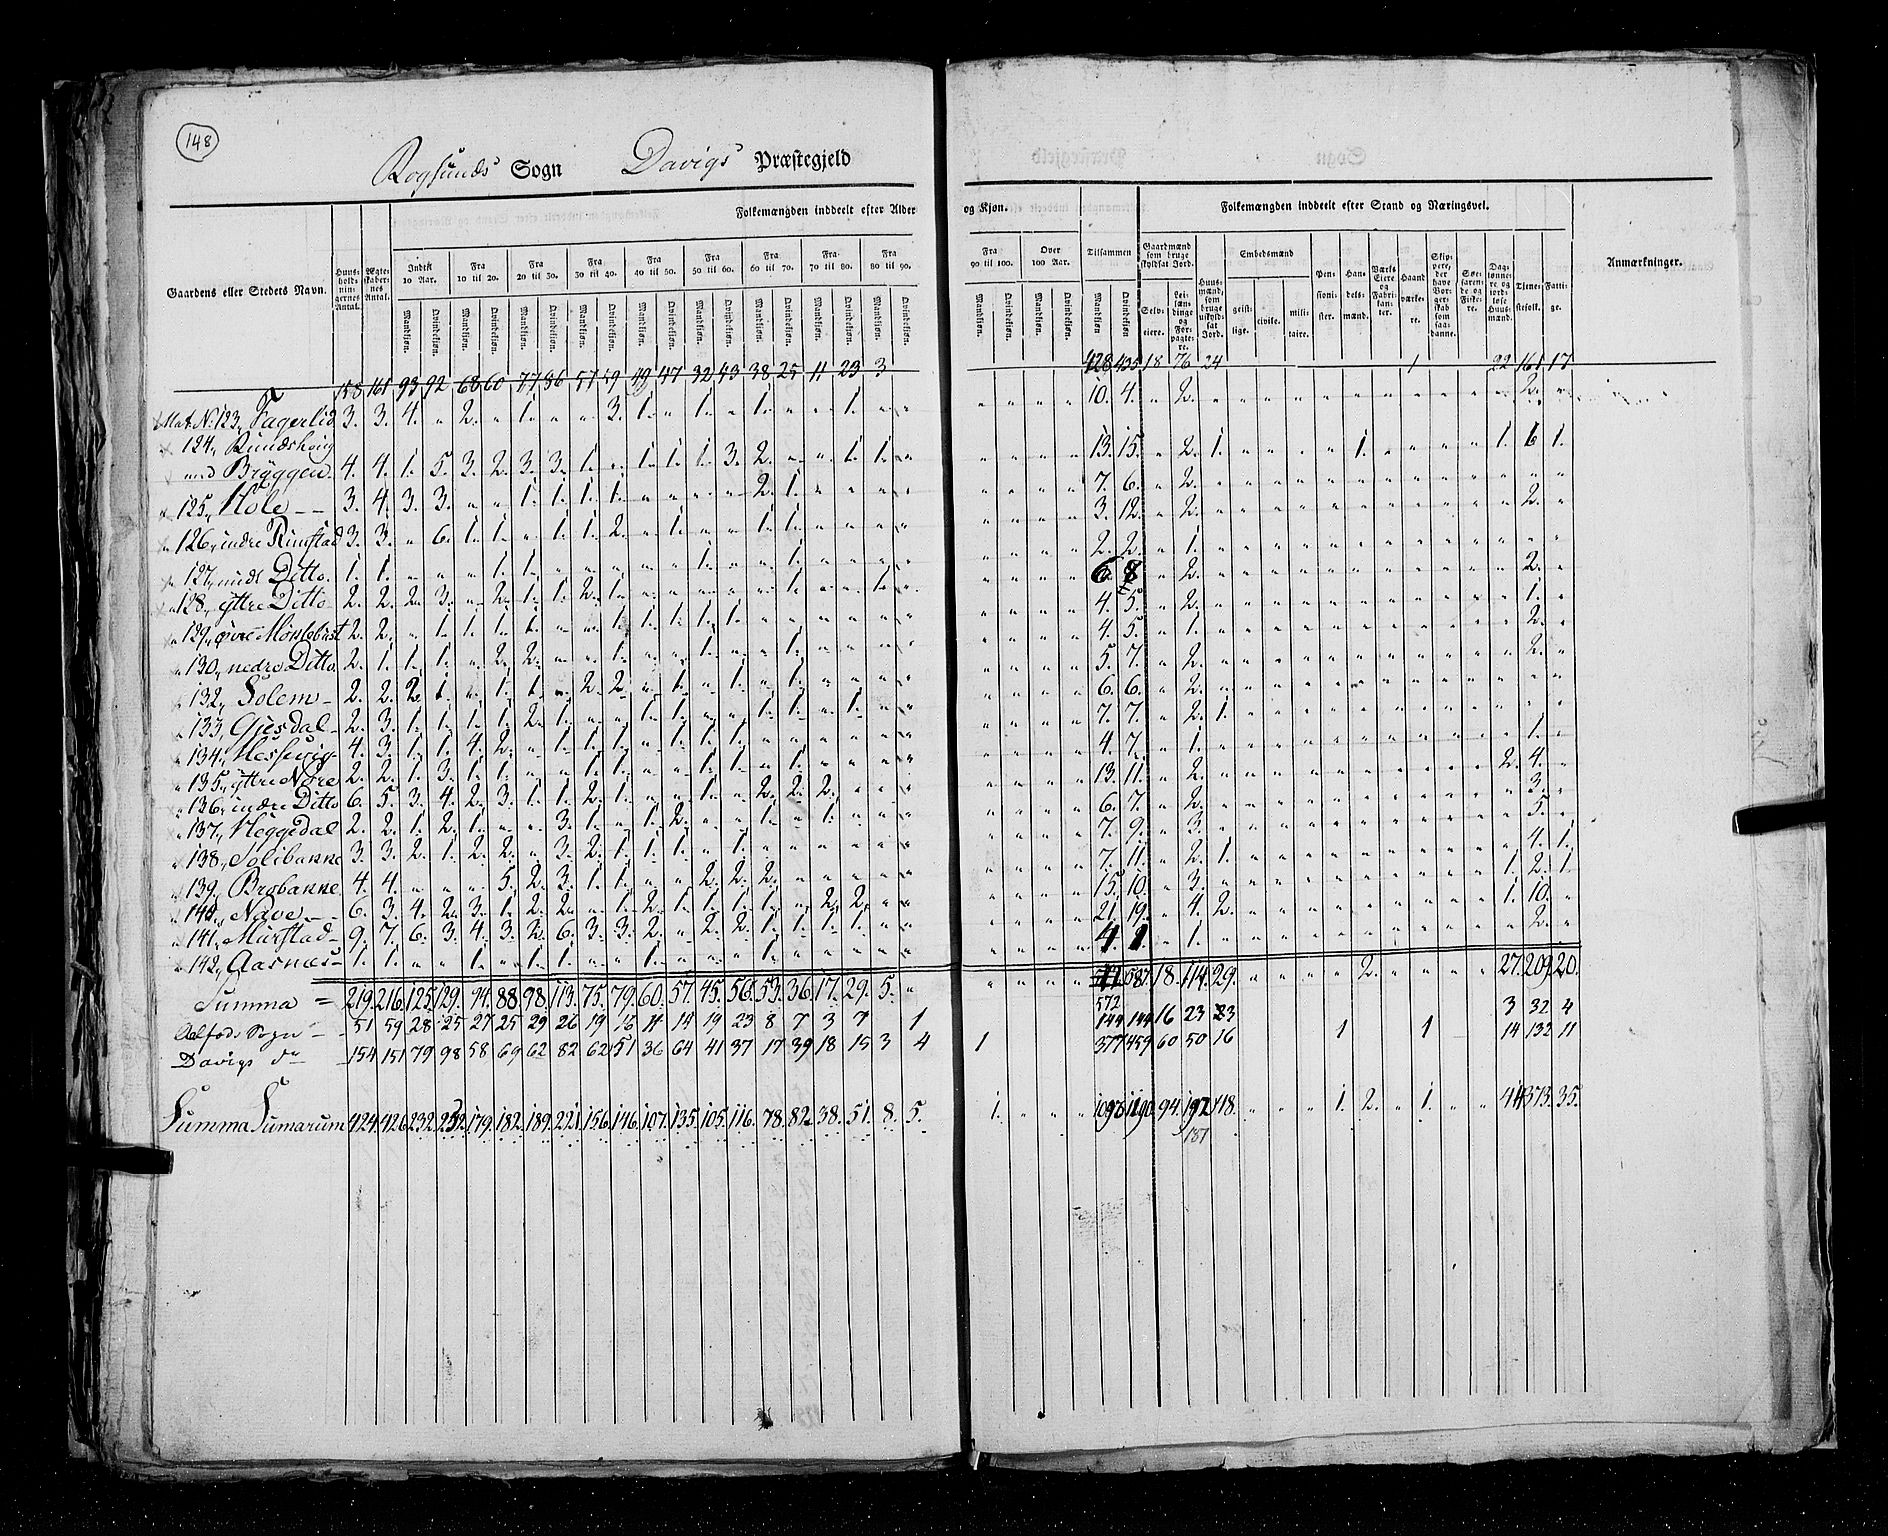 148
Rugsunds Sogn Davigs Præstegjeld
Folkemængden inddeelt efter Alder og Kjøn. Folkemængden inddeelt efter Stand og Næringsvei.
Gaardens eller Stedets Navn. Huusholdningernes Antal. Ægteskabernes Antal. Indtil 10 Aar. Fra 10 til 20. Fra 20 til 30. Fra 30 til 40. Fra 40 til 50. Fra 50 til 60. Fra 60 til 70. Fra 70 til 80. Fra 80 til 90. Fra 90 til 100. Over 100 Aar. Tilsammen Gaardmænd som bruge skyldsat Jord. Huusmænd, som bruge uskyldsat Jord. Embedsmænd Pensionister. Handelsmænd. Værks Eiere og Fabrikanter. Haandværkere. Skippere, der have Borgerskab som saadanne. Søefarende og Fiskere. Daglønnere og jordløse Huusmænd. Tjenestefolk. Fattige. Anmærkninger.
Mandkjøn. Qvindekjøn. Selveiere. Leilændinge og Forpagtere. geistlige. civile. militaire.
158 161 93 92 68 60 77 86 57 59 49 47 32 43 38 25 11 23 3 428 435 18 76 24 1 22 161 17
Mat. N. 123, Fagerlid 3. 3. 4. „ 2. „ 1. „ „ 3. 1. „ 1. „ 1. „ „ 1. „ „ 10. 4. „ 2. 2.
124, Rundshoug
med Bryggen. 4. 4. 1. 5. 3. 2. 3. 3. 1. „ 1. 1. 1. 3. 2. „ „ 1. 1. „ 13. 15. „ 2. 1. 1. 1. 6 1.
125, Hole 3. 4. 3. 3. „ „ 1. 1. 1. 1. „ „ „ „ 2. 1. 7. 6. „ 2.
126, indre Rimstad 3. 3. „ 6. 1. 1. „ 1. 1. 2. „ 1. „ „ 1. 1. 3. 12. „ 2. 2.
127, mids Ditto. 1. 1. „ „ „ 1. 1. „ „ „ „ „ 1. „ „ 1. 2. 2. „ 1.
128, yttre Ditto 2. 2. 2. 3. „ 2. 1. 1. 2. 1. „ „ „ „ „ 1. „ „ 1. „ 6 8 „ 2. 2.
129, øvre Moldebust 2. 2. „ 1. 1. 1. 1. „ „ 1. 1. 1. 1. 1. 4. 5. „ 2. 1.
130, nedre Ditto. 2. 1. 1. 1. „ 2. 2. „ „ 1. „ „ 1. „ „ 1. 4. 5. „ 1. 2.
132, Solem 2. 2. 2. 1. „ 1. 1. „ 2. 2. „ 1. „ 1. „ 1. 5. 7. „ 2. 2.
133, Gjesdal 2. 3. 1. 1. 1. 1. 2. 1. „ „ 1. 1. „ „ 1. 1. „ 1. 6. 6. „ 2.
134, Hessevig 4. 3. 1. 1. 4. 2. „ 1. 1. 1. „ 1. 1. 1. 7. 7. „ 2. 1.
135, yttre Nore 2. 2. 1. 3. 1. 1. „ „ 1. 1. „ „ 1. 1. „ 1. 4. 7. „ 1. 1.
136, indre Ditto 6. 5. 3. 4. 2. 3. 1. 1. 2. 1. „ „ 1. „ 2. 2. 2. 13. 11. „ 2. 2. 4.
137, Heggedal 2. 2. 1. 2. 1. „ „ 3. 1. „ 1. 2. „ „ 1. „ 1. 1. 6. 7. „ 2. 3.
138, Solibakke 3. 3. 2. 1. 2. 2. „ 3. 2. 1. 1. 1. „ 1. 7. 9. „ 3. 5.
139, Brobakke 4. 4. „ „ „ 5. 2. 3. 1. 1. „ „ 2. 2. 2. 7. 11. „ 2. 1. 4. 1.
140, Nave 6. 3. 4. 2. 3. 1. 2. 2. „ 1. 2. 1. 1. 1. 1. „ 2. 2. 15. 10. „ 3. 1. 2. 1.
141, Maurstad 9. 7. 6. 3. 4. 3. 2. 6. 3. 3. 2. „ 2. 2. 1. 1. 1. 1. 21. 19. „ 4. 2. 1. 10.
142, Aasnæs 1. 1. „ „ 1. „ 1. 1. „ „ 1. „ „ „ 1. 4 „ 1. 2.
Summa = 219. 216. 125. 129. 94. 88. 98. 113. 75. 79. 60. 57. 45. 56. 53. 36. 17. 29. 5. „ 587. 18. 114. 29. 2. 27. 209. 20.
572
Aalfods Sogn 51 59 28 25 27 25 29 26 19 16 11 14 19 23 8 7 3 7 1 144 144 16 23 23 3 32 4
Davigs do 154 151 79 98 58 69 62 82 62 51 36 64 41 37 17 39 18 15 3 4 1 377 459 60 50 16 1 1 14 132 11
Summa Sumarum 424. 426. 232. 252. 179. 182. 189. 221. 156. 146. 107. 135. 105. 116. 78. 82. 38. 51. 8. 5. 1. 1190. 94. 192. 1. 2. 1. 44 373. 35.
187